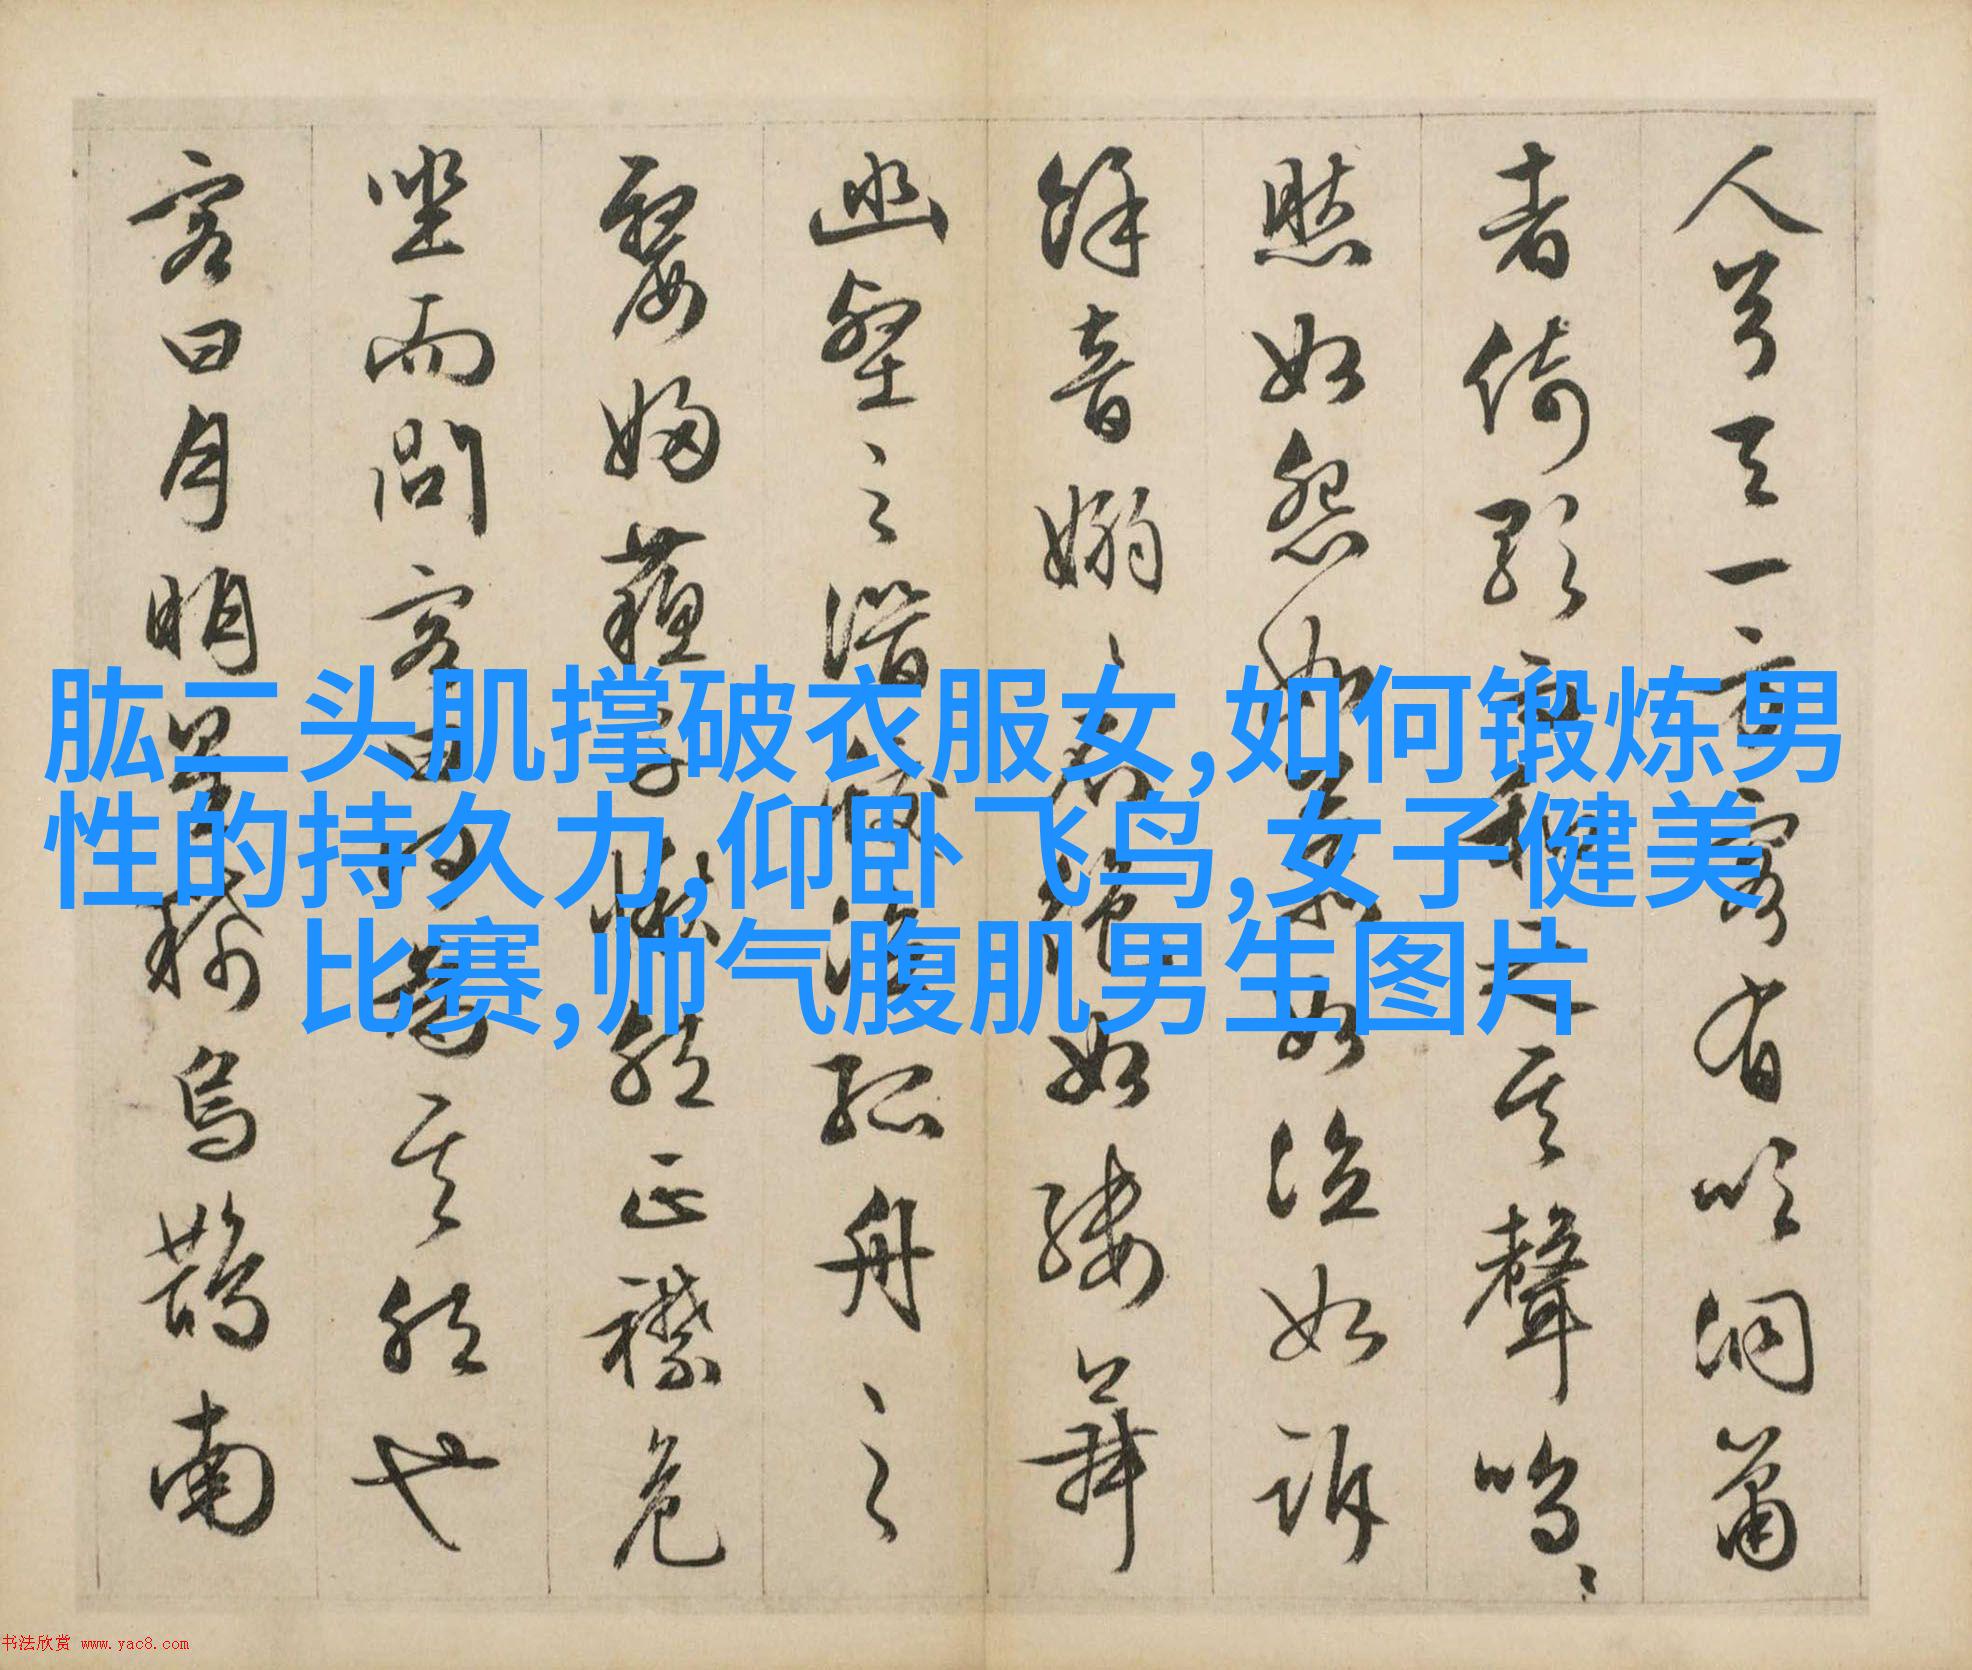 人兮天一方客有吹洞蕭
者倚歌而和之其聲嗚〻
然如怨如慕如泣如訴
餘音嫋〻不絕如縷舞
幽壑之潛蛟泣孤舟之
嫠婦蘇子愀然正襟危
坐而問客曰何為其然也
客曰月明星稀烏鵲南
肱二头肌撑破衣服女,如何锻炼男
性的持久力,仰卧飞鸟,女子健美
比赛,帅气腹肌男生图片
书法欣赏 www.yac8.com